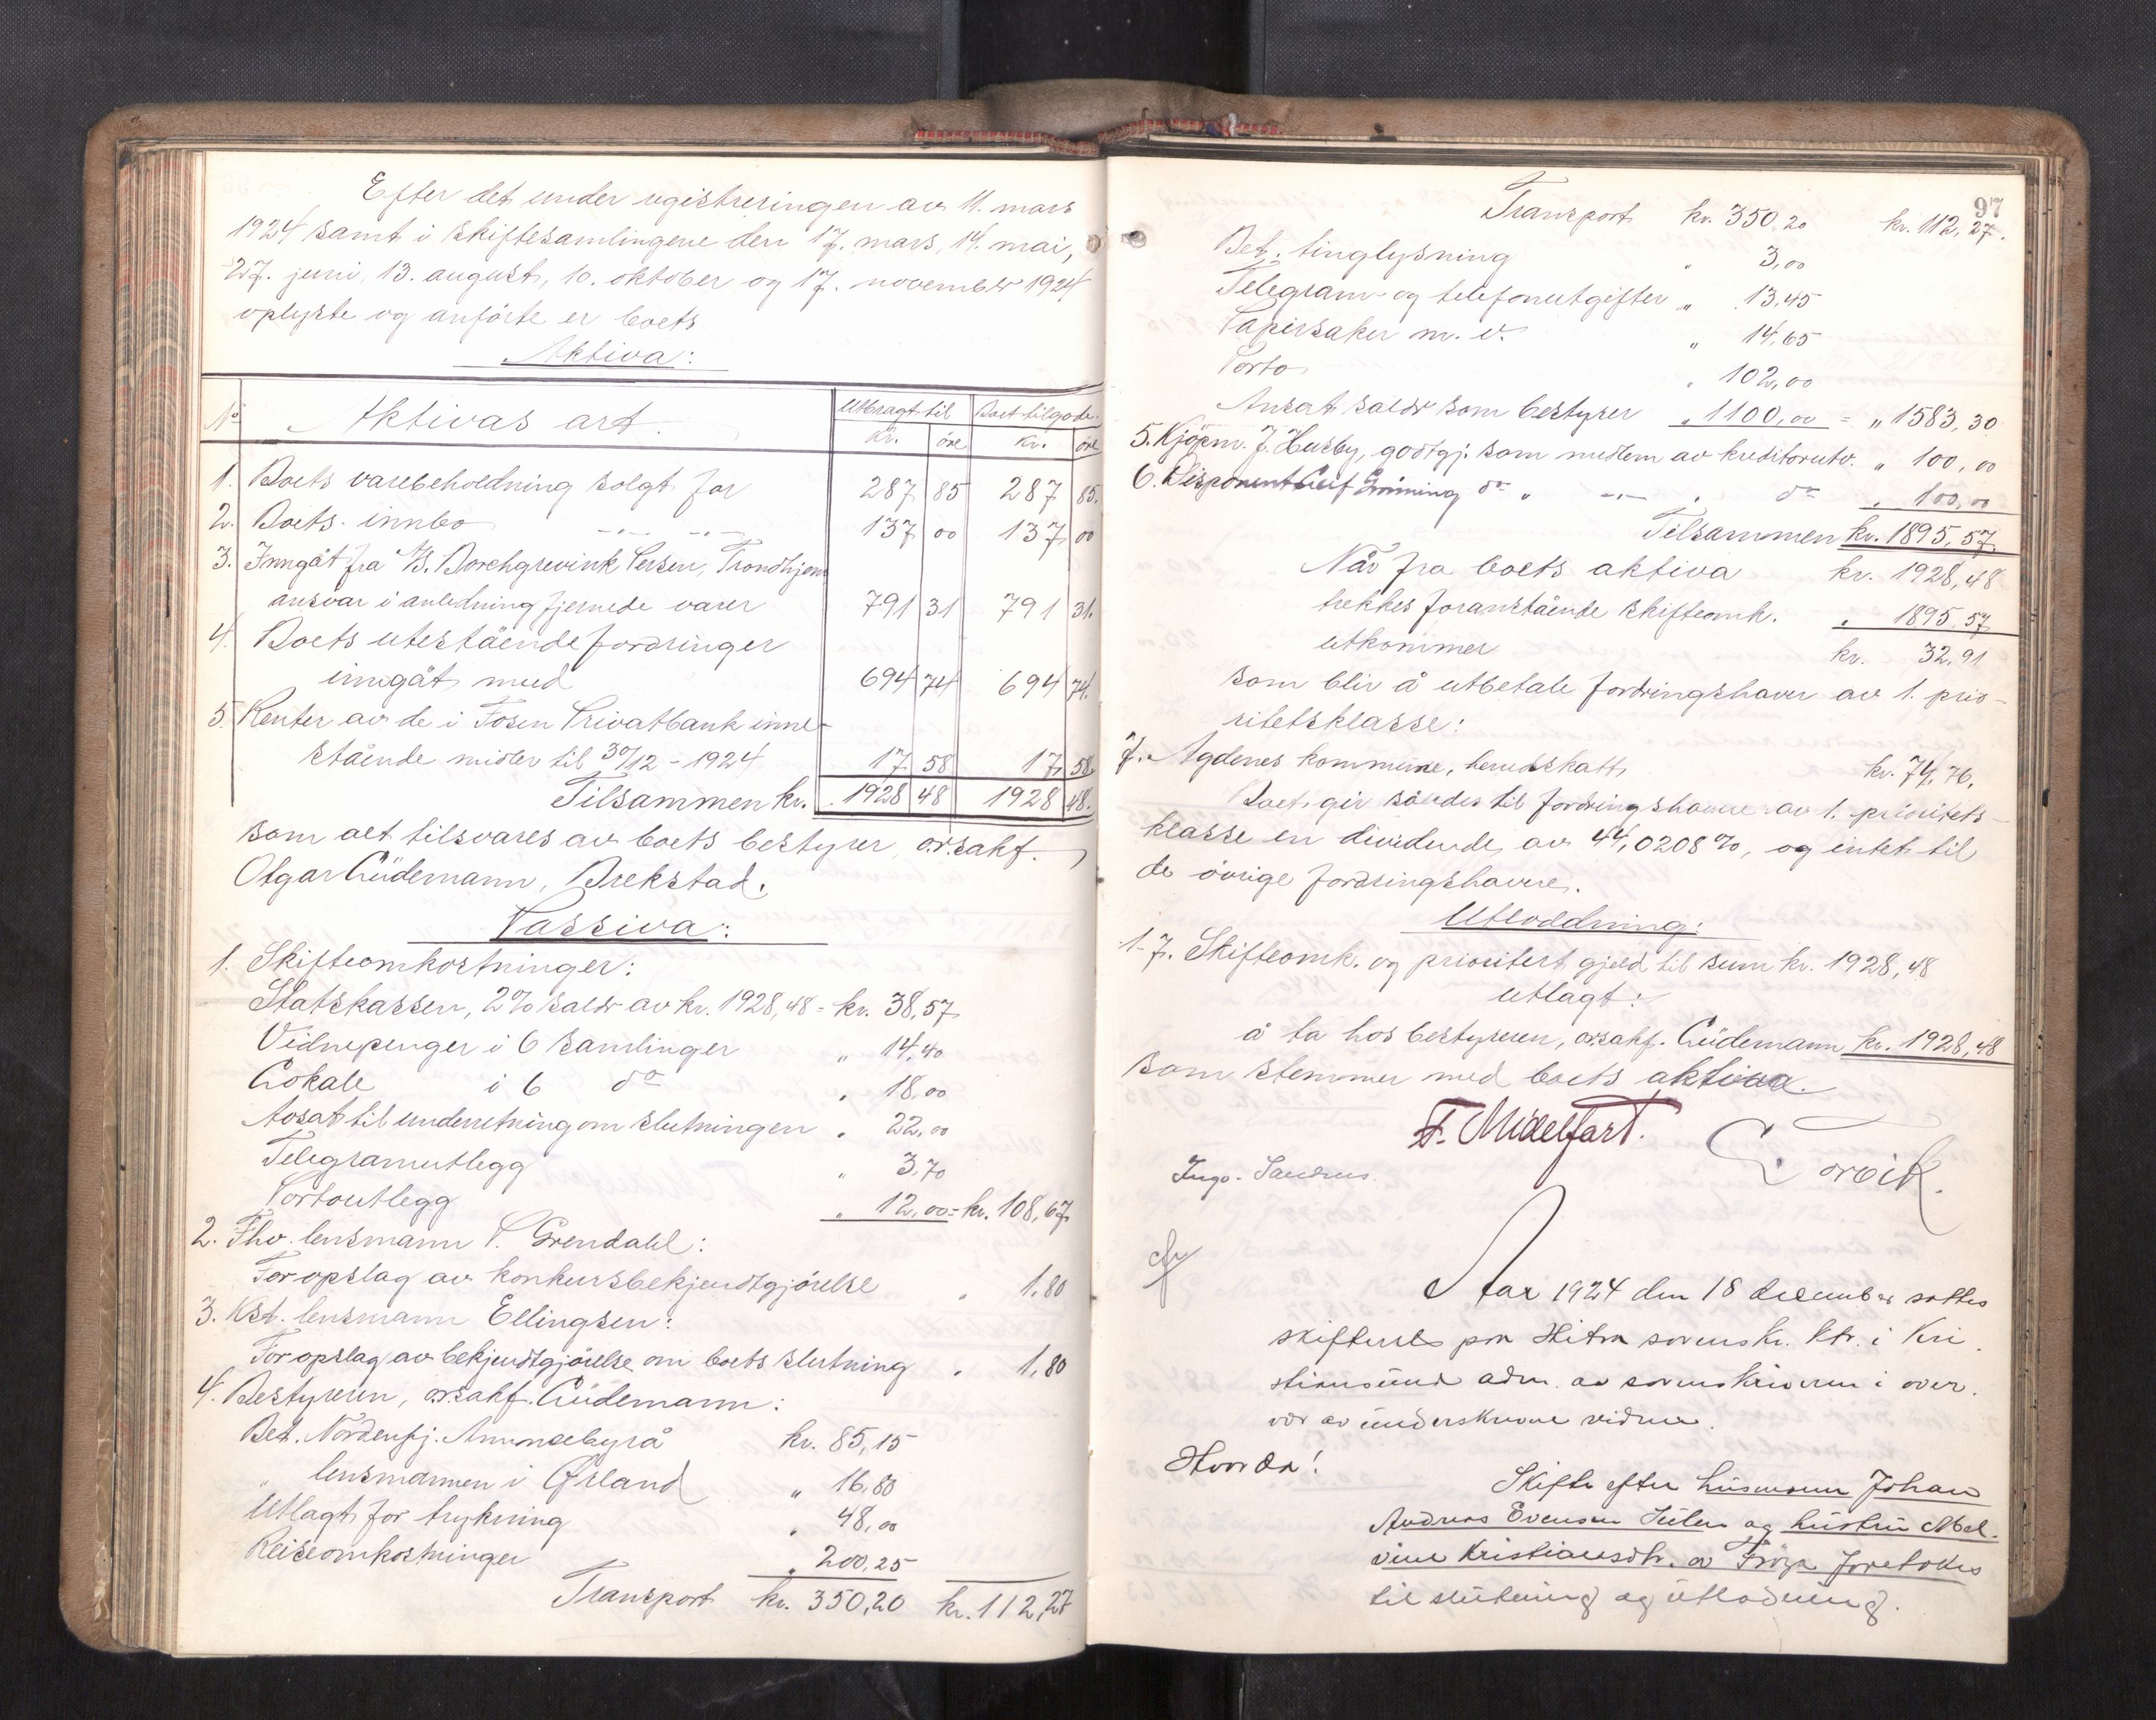 Efter det under registreringen av 11. mars
1924 samt i skiftesamlingene den 17. mars, 14. mai,
27. juni, 13. august, 10. oktober og 17. november 1924
oplyste og anförte er boets
Aktiva:
No Aktivas art. Utbragt til Boet tilgode.
kr. öre kr. öre
1. Boets varebeholdning solgt for 287 85 287 85.
2. Boets innbo -"- -"- 137 00 137 00
3. Inngåt fra A/S. Borchgrevink Persen, Trondhjem
ansvar i anledning fjernede varer 791 31 791 31.
4. Boets utestående fordringer
inngåt med 694 74 694 74.
5. Renter av de i Fosen Privatbank inne-
stående midler til 30/12 - 1924 17 58 17 58
Tilsammen kr. 1928 48 1928 48.
som alt tilsvares av boets bestyrer, o.r.sakf.
Otgar Lüdemann, Brekstad.
Passiva:
1. Skifteomkostninger:
Statskassen, 2% salær av kr. 1928,48 = kr. 38,57
Vidnepenger i 6 samlinger " 14,40
Lokale i 6 do " 18,00
Avsat til underretning om slutningen " 22,00
Telegramutlegg " 3,70
Portoutlegg " 12,00 = kr. 108,67
2. Fhv. lensmann P. Grendahl:
For opslag av konkursbekjendtgjörelse " 1,80
3. Kst. lensmann Ellingsen:
For opslag av bekjendtgjörelse om boets slutning " 1,80
4. Bestyreren, o.r.sakf. Lüdemann:
Bet. Nordenfj. Annoncebyrå kr. 85,15
" lensmannen i Ørland " 16,80
Utlagt for trykning " 48,00
Reiseomkostninger " 200,25
Transport kr. 350,20 kr. 112,27
97
Transport kr. 350,20 kr. 112,27.
Bet. tinglysning " 3,00
Telegram- og telefonutgifter " 13,45
Papirsaker m. v. " 14,65
Porto " 102,00
Ansat salær som bestyrer " 1100,00 = " 1583,30
5. Kjöpm. J. Husby, godtgj. som medlem av kreditorutv. " 100,00
6. Disponent Leif Gröning do " -"- " do " 100,00
Tilsammen kr. 1895,57
Når fra boets aktiva kr. 1928,48
trekkes foranstående skifteomk. " 1895,57
utkommer kr. 32,91
som blir å utbetale fordringshaver av 1. prio-
ritetsklasse:
7. Agdenes kommune, herredskatt kr. 74,76.
Boet gir således til fordringshavere av 1. prioritets-
klasse en dividende av 44,0208%, og intet til
de övrige fordringshavere.
Utloddning:
1-7. Skifteomk. og prioritert gjeld til sum kr. 1928,48
utlagt:
å ta hos bestyreren, o.r.sakf. Lüdemann kr. 1928,48
som stemmer med boets aktiva.
F. Midelfart.
Aar 1924 den 18 december sattes
skifteret paa Hitra sorenskr. ktr. i Kri
stiansund adm. av sorenskriveren i over.
vær av underskrevne vidner.
Hvorda!
Skifte efter husmann Johan
Andreas Evensen og hustru Mal.
vine Kristiansdtr. av Fröya foretokes
til slutning og utlodning.